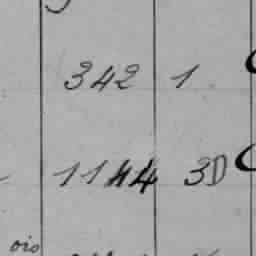 342 1
1144 3D
ois